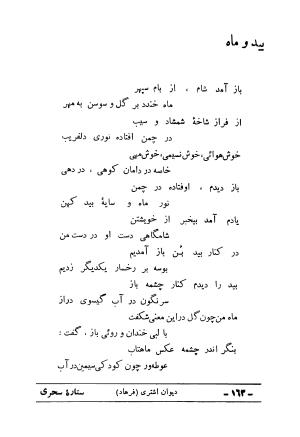 بید و ماه
باز آمد شام ، از بام سپهر
ماه خندد بر گل و سوسن به مهر
از فراز شاخهٔ شمشاد و سیب
در چمن افتاده نوری دلفریب
خوش‌هوائی، خوش‌نسیمی، خوش‌مهی
خاسه در دامان کوهی ، در دهی
باز دیدم ، اوفتاده در چمن
نور ماه و سایهٔ بید کهن
یادم آمد بیخبر از خویشتن
شامگاهی دست او در دست من
در کنار بید بُن باز آمدیم
بوسه بر رخسار یکدیگر زدیم
بید را دیدم کنار چشمه باز
سرنگون در آب گیسوی دراز
ماه من چون گل در این معنی شکفت
با لبی خندان و روئی باز ، گفت :
بنگر اندر چشمه عکس ماهتاب
غوطه‌ور چون کودکی سیمین در آب
ستارهٔ سحری دیوان اشتری (فرهاد) -۱۶۳-